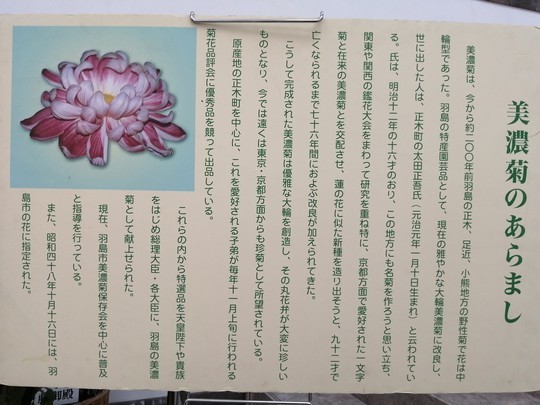 美濃菊のあらまし
美濃菊は、今から約二〇〇年前羽島の正木、足近、小熊地方の野性菊で花は中
輪型であった。羽島の特産園芸品として、現在の雅やかな大輪美濃菊に改良し、
世に出した人は、正木町の太田正吾氏（元治元年一月十日生まれ）と云われてい
る。氏は、明治十二年の十六才のおり、この地方にも名菊を作ろうと思い立ち、
関東や関西の鑑花大会をまわって研究を重ね特に、京都方面で愛好された一文字
菊と在来の美濃菊とを交配させ、蓮の花に似た新種を造り出そうと、九十二才で
亡くなられるまで七十六年間におよぶ改良が加えられてきた。
こうして完成された美濃菊は優雅な大輪を創造し、その丸花弁が大変に珍しい
ものとなり、今では遠くは東京・京都方面からも珍菊として所望されている。
原産地の正木町を中心に、これを愛好される子弟が毎年十一月上旬に行われる
菊花品評会に優秀品を競って出品している。
これらの内から特選品を天皇陛下や貴族
をはじめ総理大臣・各大臣に、羽島の美濃
菊として献上せられた。
現在、羽島市美濃菊保存会を中心に普及
と指導を行っている。
また、昭和四十八年十月十六日には、羽
島市の花に指定された。